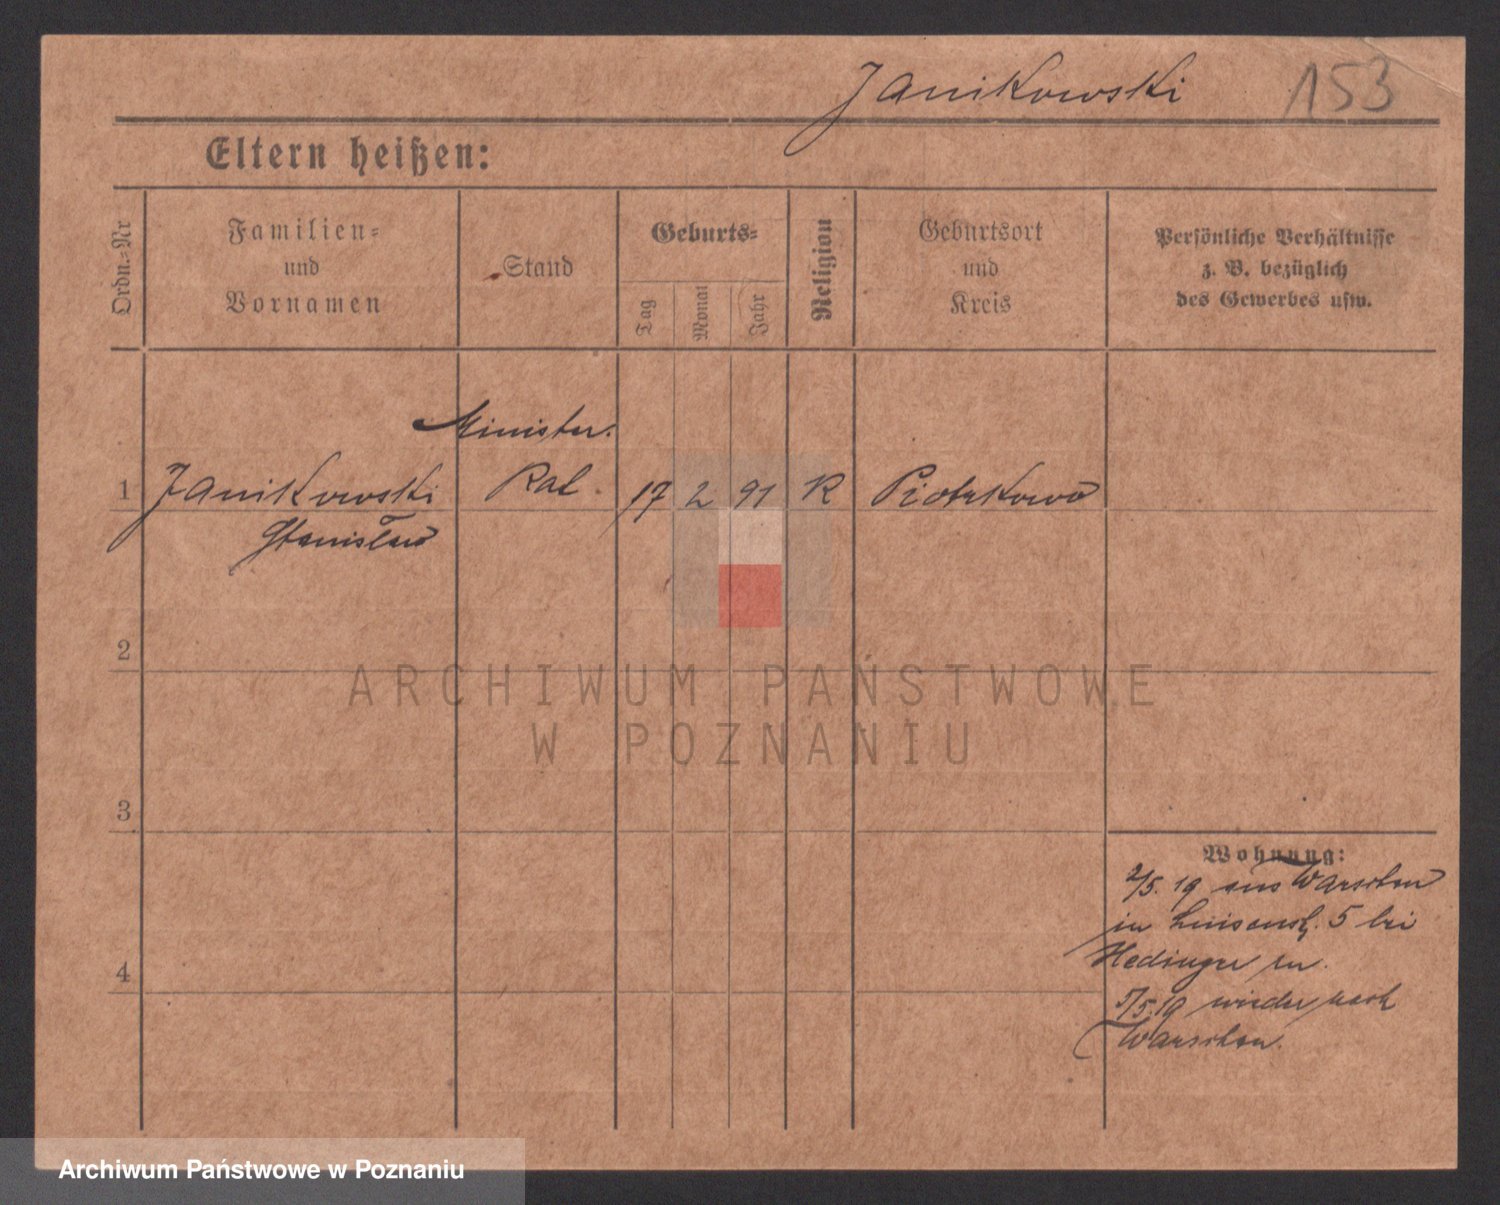 Janikowski 153
Eltern heißen:
Ordn.-Nr
Familien-
und
Vornamen
Stand
Geburts-
Tag
Monat
Jahr
Religion
Geburtsort
und
Kreis
Persönliche Verhältnisse
z. B. bezüglich
des Gewerbes usw.
Minister.
1 Janikowski Rat. 17 2 91 R Piotrkowo
Stanisław
2
3
4
Wohnung:
2/5. 19 aus Warschau
in Luisenstr. 5 bei
Hedinger
5/5.19 wieder nach
Warschau.
ARCHIWUM PAŃSTWOWE
W POZNANIU
Archiwum Państwowe w Poznaniu